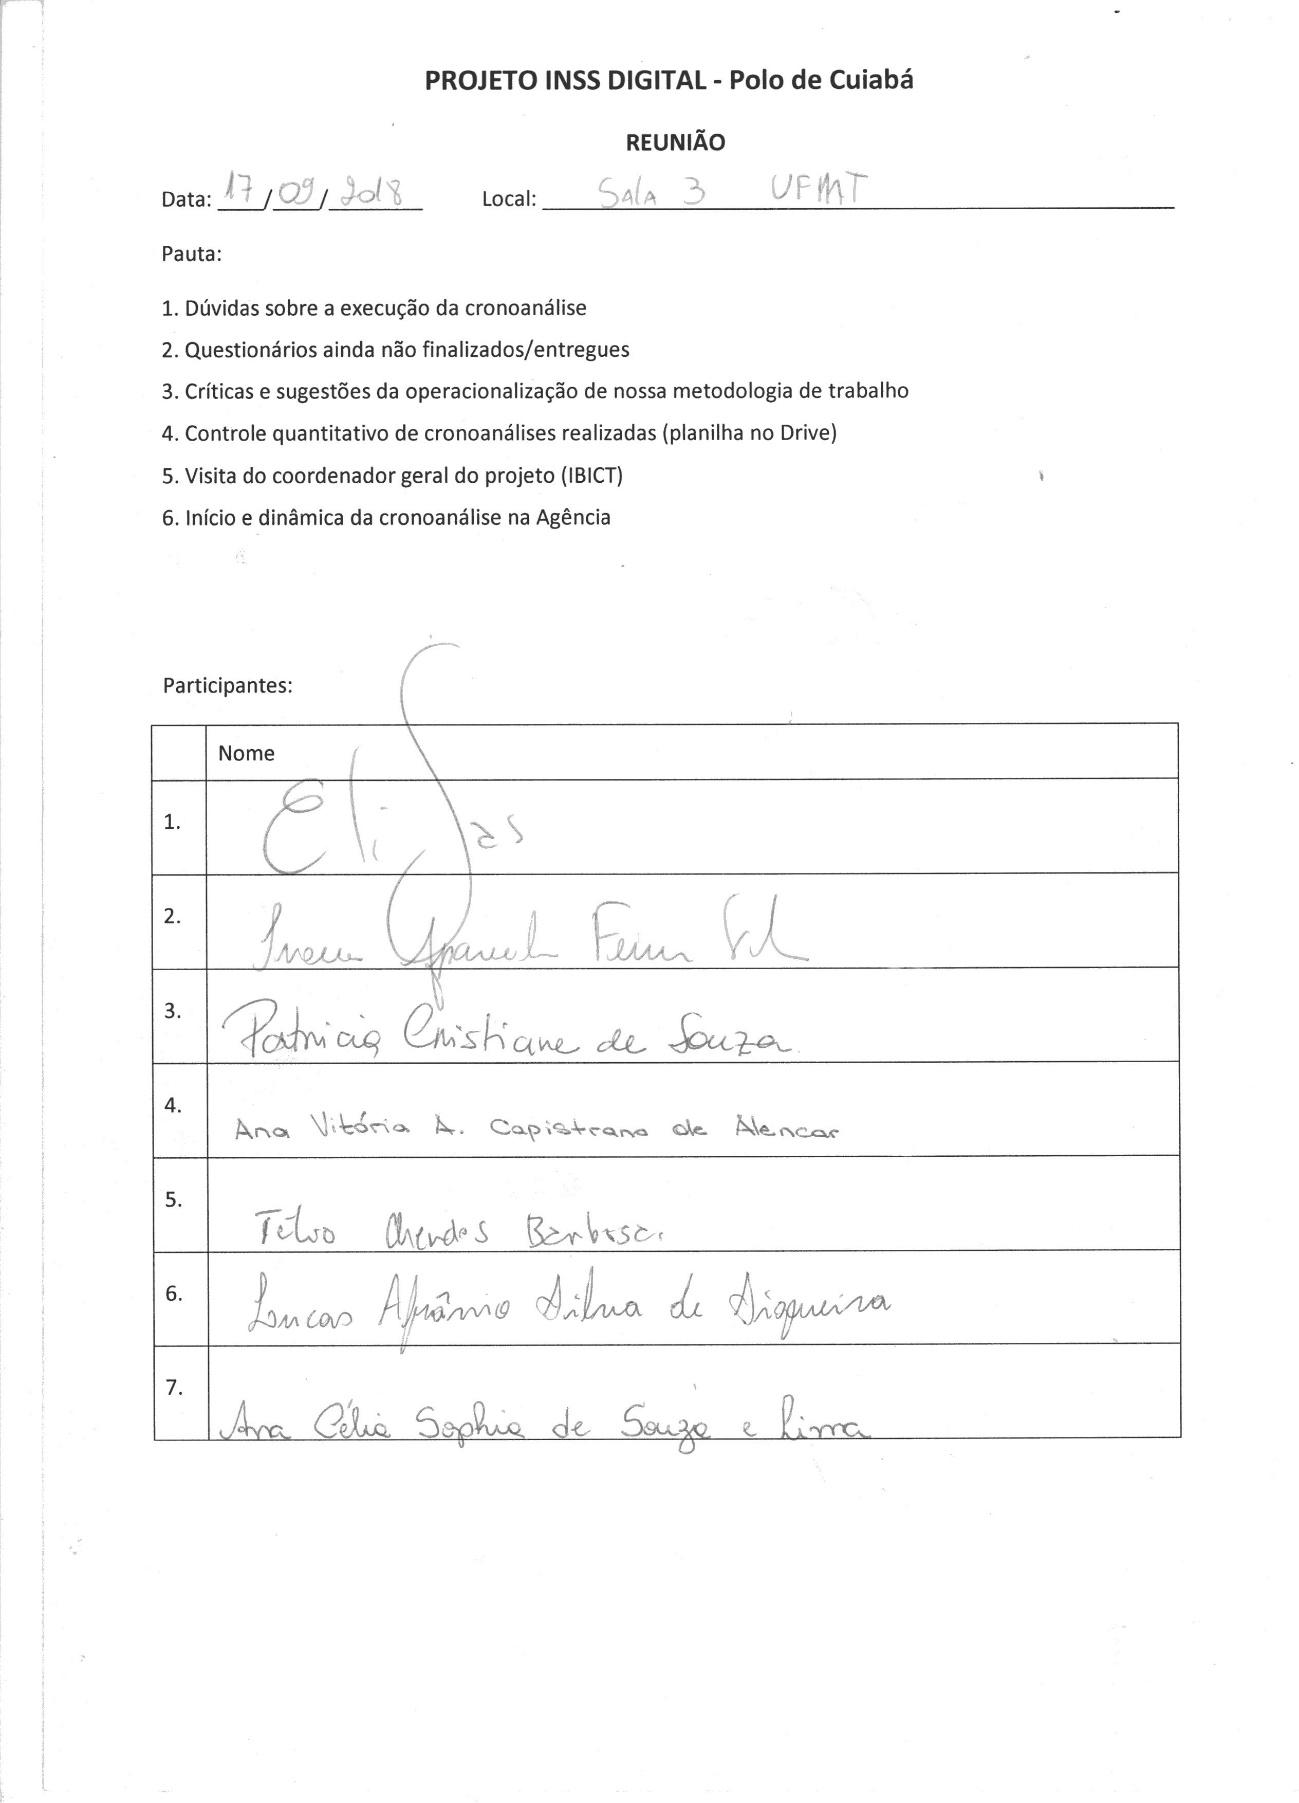 PROJETO INSS DIGITAL - Polo de Cuiabá
REUNIÃO
Data: 17/09/2018 Local: Sala 3 UFMT
Pauta:
1. Dúvidas sobre a execução da cronoanálise
2. Questionários ainda não finalizados/entregues
3. Críticas e sugestões da operacionalização de nossa metodologia de trabalho
4. Controle quantitativo de cronoanálises realizadas (planilha no Drive)
5. Visita do coordenador geral do projeto (IBICT)
6. Início e dinâmica da cronoanálise na Agência
Participantes:
Nome
1. Elisas
2.
3. Patricia Cristiane de Souza
4. Ana Vitória A. Capistrano de Alencar
5. Mendes Barbosa.
6. Lucas Afrânio Silva de Siqueira
7. Ana Célia Sophia de Souza e Lima